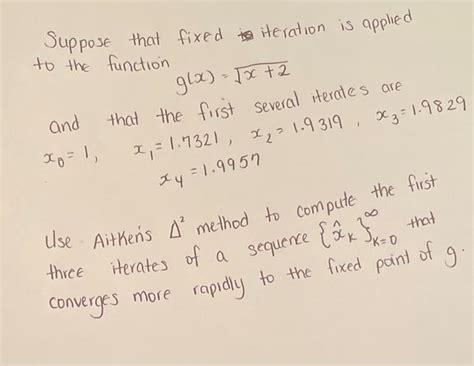 Suppose that fixed iteration is applied
to the function
g(x) = √x+2
and that the first several iterates are
x₀=1, x₁=1.7321, x₂=1.9319, x₃=1.9829
x₄=1.9957
Use Aitken's Δ² method to compute the first
three iterates of a sequence {x̂ₖ}∞ₖ₌₀ that
converges more rapidly to the fixed point of g.